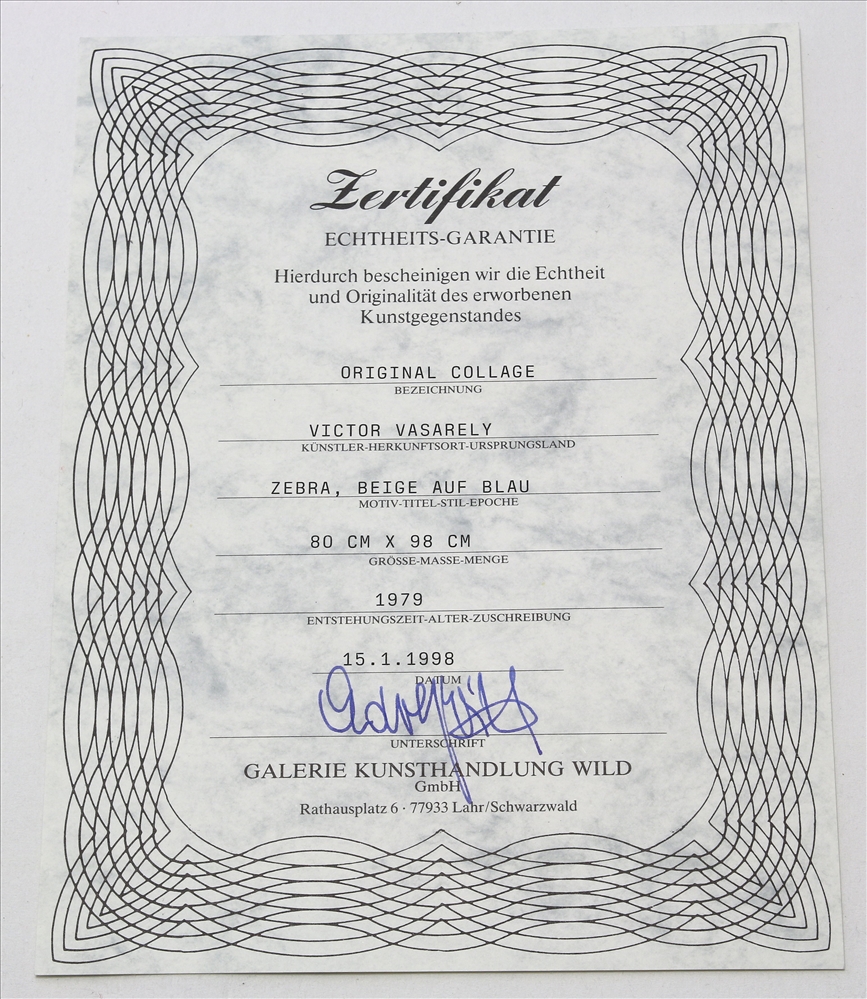 Zertifikat
ECHTHEITS-GARANTIE
Hierdurch bescheinigen wir die Echtheit
und Originalität des erworbenen
Kunstgegenstandes
ORIGINAL COLLAGE
BEZEICHNUNG
VICTOR VASARELY
KÜNSTLER-HERKUNFTSORT-URSPRUNGSLAND
ZEBRA, BEIGE AUF BLAU
MOTIV-TITEL-STIL-EPOCHE
80 CM X 98 CM
GRÖSSE-MASSE-MENGE
1979
ENTSTEHUNGSZEIT-ALTER-ZUSCHREIBUNG
15.1.1998
DATUM
UNTERSCHRIFT
GALERIE KUNSTHANDLUNG WILD
GmbH
Rathausplatz 6 · 77933 Lahr/Schwarzwald